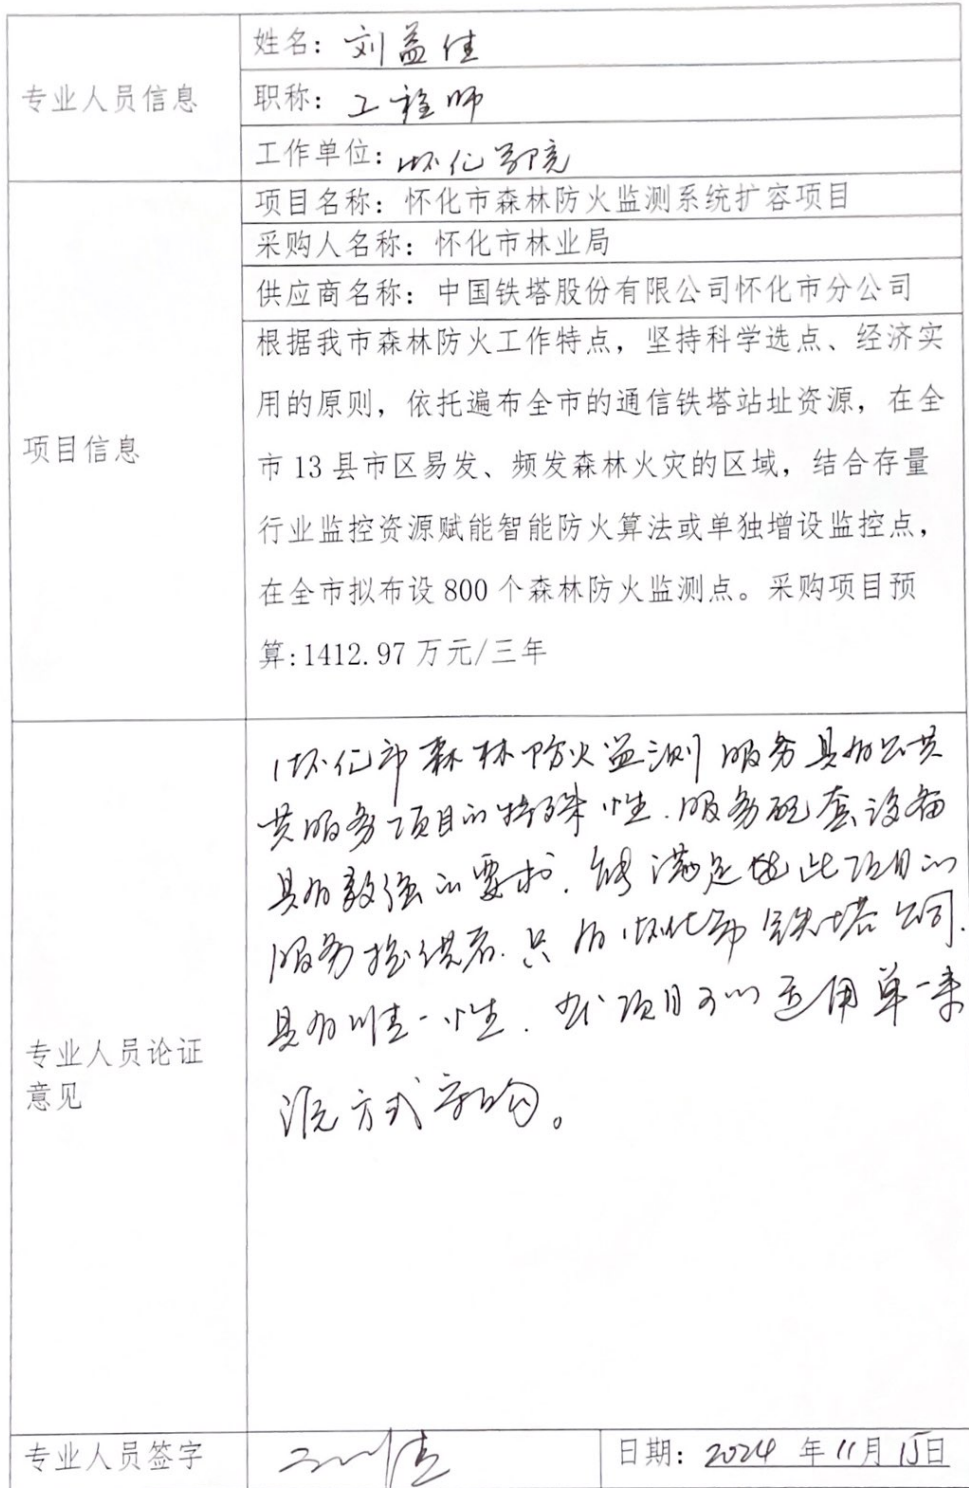 专业人员信息
姓名：刘益佳
职称：工程师
工作单位：怀化学院
项目信息
项目名称：怀化市森林防火监测系统扩容项目
采购人名称：怀化市林业局
供应商名称：中国铁塔股份有限公司怀化市分公司
根据我市森林防火工作特点，坚持科学选点、经济实
用的原则，依托遍布全市的通信铁塔站址资源，在全
市13县市区易发、频发森林火灾的区域，结合存量
行业监控资源赋能智能防火算法或单独增设监控点，
在全市拟布设800个森林防火监测点。采购项目预
算:1412.97万元/三年
专业人员论证
意见
怀化市森林防火监测服务具有公共
共服务项目的特殊性.服务配套设备
具有较强的要求.能满足此项目的
服务提供者.只有怀化市铁塔公司.
具有唯一性.此项目可以适用单一来
源方式采购。
专业人员签字
日期：2024年11月15日